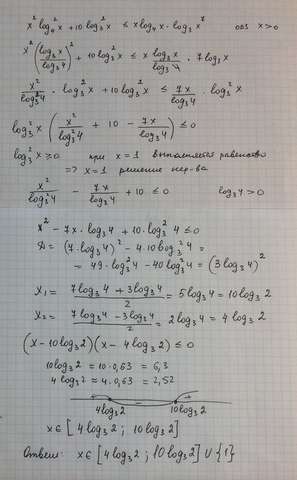 x² log₄² x + 10 log₃² x ≤ x log₄ x · log₃ x⁷ одз x > 0
x² (log₃ x / log₃ 4)² + 10 log₃² x ≤ x log₃ x / log₃ 4 · 7 log₃ x
x² / log₃² 4 · log₃² x + 10 log₃² x ≤ 7x / log₃ 4 · log₃² x
log₃² x (x² / log₃² 4 + 10 − 7x / log₃ 4) ≤ 0
log₃² x ≥ 0 при x = 1 выполняется равенство
=> x = 1 решение нер-ва
x² / log₃² 4 − 7x / log₃ 4 + 10 ≤ 0 log₃ 4 > 0
x² − 7x · log₃ 4 + 10 · log₃² 4 ≤ 0
D = (7 log₃ 4)² − 4 · 10 log₃² 4 =
= 49 · log₃² 4 − 40 log₃² 4 = (3 log₃ 4)²
x₁ = (7 log₃ 4 + 3 log₃ 4) / 2 = 5 log₃ 4 = 10 log₃ 2
x₂ = (7 log₃ 4 − 3 log₃ 4) / 2 = 2 log₃ 4 = 4 log₃ 2
(x − 10 log₃ 2)(x − 4 log₃ 2) ≤ 0
10 log₃ 2 ≈ 10 · 0,63 = 6,3
4 log₃ 2 ≈ 4 · 0,63 = 2,52
+ − +
4 log₃ 2 10 log₃ 2
x ∈ [4 log₃ 2 ; 10 log₃ 2]
Ответ: x ∈ [4 log₃ 2 ; 10 log₃ 2] ∪ {1}